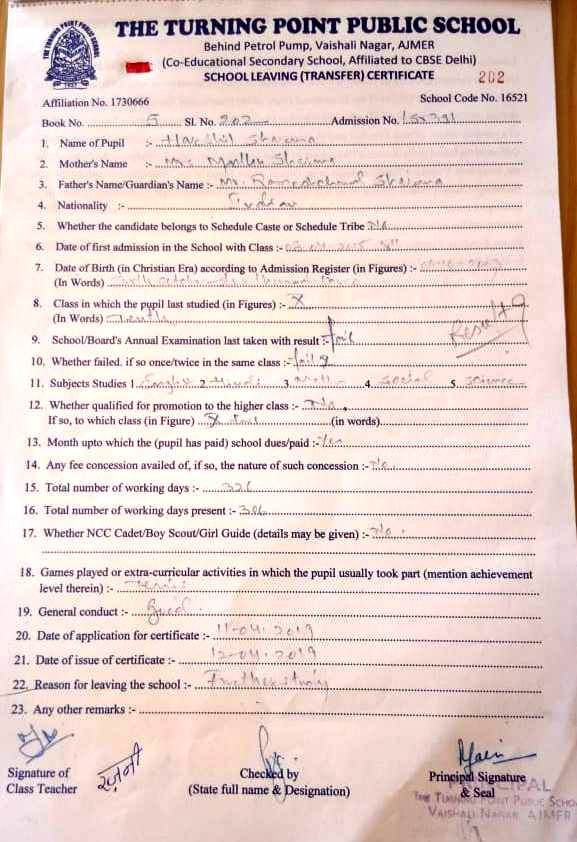 THE TURNING POINT PUBLIC SCHOOL
THE TURNING POINT PUBLIC SCHOOL
Behind Petrol Pump, Vaishali Nagar, AJMER
(Co-Educational Secondary School, Affiliated to CBSE Delhi)
SCHOOL LEAVING (TRANSFER) CERTIFICATE 202
Affiliation No. 1730666 School Code No. 16521
Book No. 5 Sl. No. 202 Admission No.
1. Name of Pupil :- Sharma
2. Mother's Name :- Sharma
3. Father's Name/Guardian's Name :- Mr. Sharma
4. Nationality :- Indian
5. Whether the candidate belongs to Schedule Caste or Schedule Tribe No
6. Date of first admission in the School with Class :-
7. Date of Birth (in Christian Era) according to Admission Register (in Figures) :-
(In Words)
8. Class in which the pupil last studied (in Figures) :- X
(In Words) Tenth
9. School/Board's Annual Examination last taken with result :- Fail
Result
10. Whether failed. if so once/twice in the same class :- fail
11. Subjects Studies 1. English 2. Hindi 3. Math 4. Social 5. Science
12. Whether qualified for promotion to the higher class :- No.
If so, to which class (in Figure) (in words)
13. Month upto which the (pupil has paid) school dues/paid :- Yes
14. Any fee concession availed of, if so, the nature of such concession :- No
15. Total number of working days :- 326
16. Total number of working days present :- 306
17. Whether NCC Cadet/Boy Scout/Girl Guide (details may be given) :- No.
18. Games played or extra-curricular activities in which the pupil usually took part (mention achievement
level therein) :- Tennis
19. General conduct :- Good
20. Date of application for certificate :- 11-04-2019
21. Date of issue of certificate :- 12-04-2019
22. Reason for leaving the school :- Further study
23. Any other remarks :-
Signature of Checked by Principal Signature
Class Teacher (State full name & Designation) & Seal
PRINCIPAL
THE TURNING POINT PUBLIC SCHO
VAISHALI NAGAR, AJMER